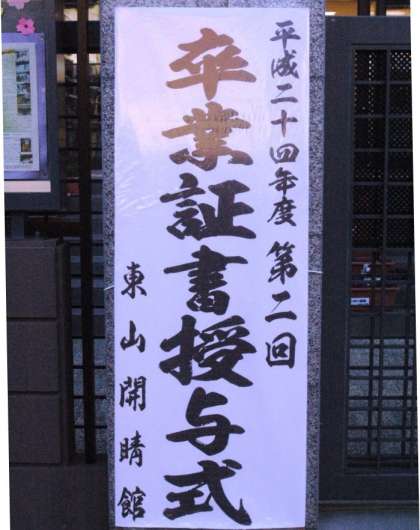 平成二十四年度 第二回
卒業証書授与式
東山開晴館